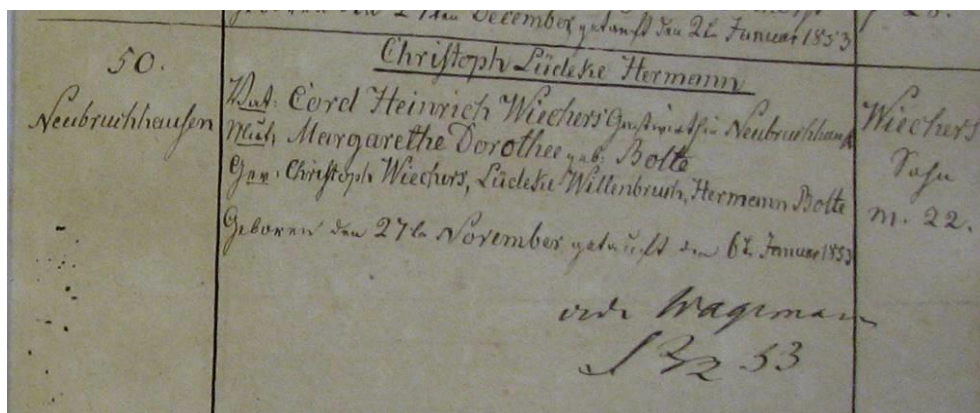 geboren den 27ten December getauft den 2t Januar 1853
50.
Neubruchhausen
Christoph Lüdeke Hermann
Vat: Cord Heinrich Wiechers Gastwirth in Neubruchhaus
Mutt, Margarethe Dorothee geb: Bolte
Gev: Christoph Wiechers, Lüdeke Wittenbruch, Hermann Bolte
Geboren den 27te November getauft den 6t Januar 1853
Wiechers
Sohn
m. 22.
vidi Wageman
2/2 53